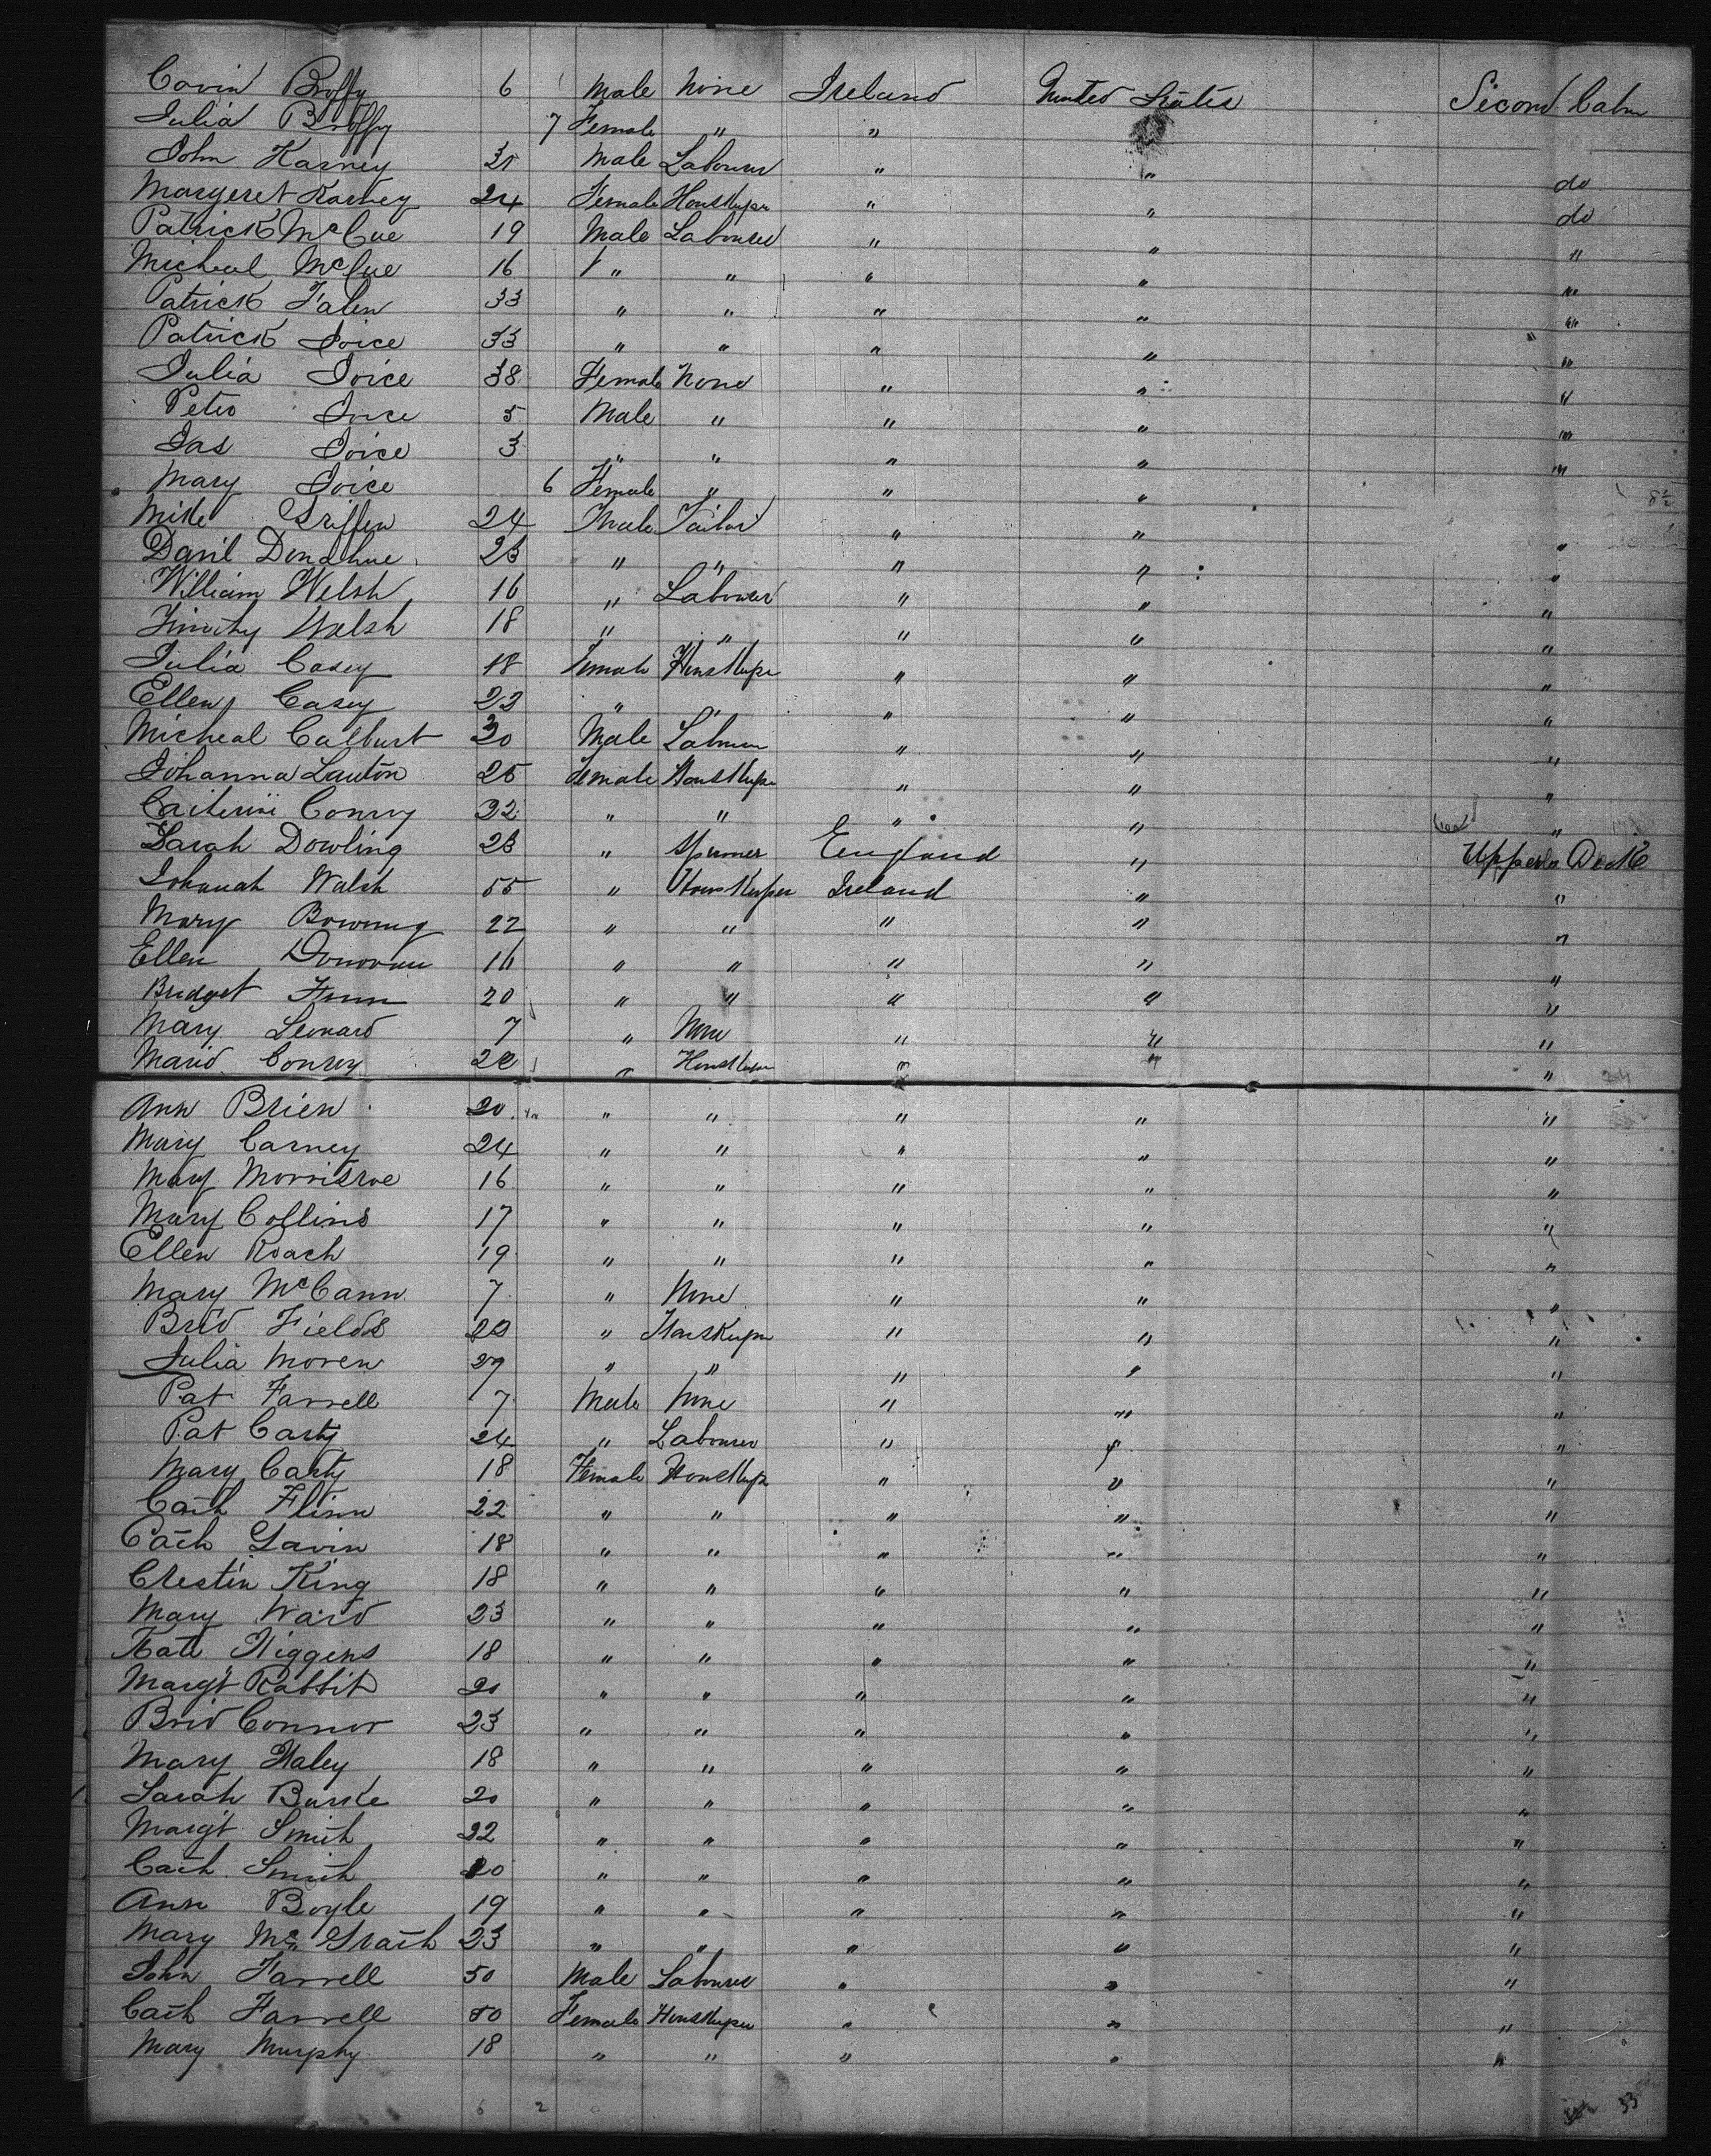 Covin Broffy 6 Male None Ireland United States Second Cabn
Julia Broffy 7 Female " "
John Karney 31 Male Labourer " " do
Margeret Karney 24 Female Houskeper " " do
Patrick McCue 19 Male Labourer " " "
Micheal McCue 16 " " " " "
Patrick Falen 33 " " " " "
Patrick Joice 33 " " " " "
Julia Joice 38 Female None " " "
Peter Joice 5 Male " " " "
Jas Joice 3 " " " " "
Mary Joice 6 Female " " "
Mike Griffen 24 Male Tailor " " "
Danil Donahue 23 " " " " "
William Welsh 16 " Labourer " " "
Timothy Walsh 18 " " " " "
Julia Casey 18 Female Houskeper " " "
Ellen Casey 22 " " " " "
Micheal Calburt 30 Male Labourer " " "
Johanna Lawton 25 Female Houskeper " " "
Catherine Conroy 32 " " " " "
Sarah Dowling 23 " Spinner England " Upper Deck
Johanah Walsh 55 " Houskeeper Ireland " "
Mary Bowning 22 " " " " "
Ellen Donovan 16 " " " " "
Bridget Finn 20 " " " " "
Mary Leonard 7 " None " " "
Maria Conroy 22 " Houskeper " " "
Ann Brien 20 " " " " "
Mary Carney 24 " " " " "
Mary Morrisroe 16 " " " " "
Mary Collins 17 " " " " "
Ellen Roach 19 " " " " "
Mary McCann 7 " None " " "
Brid Fields 20 " Houskeper " " "
Julia Moren 27 " " " " "
Pat Farrell 7 Male None " " "
Pat Carty 24 " Labourer " " "
Mary Carty 18 Female Houskeper " " "
Cath Flinn 22 " " " " "
Cath Gavin 18 " " " " "
Crestin King 18 " " " " "
Mary Ward 23 " " " " "
Kate Higgens 18 " " " " "
Margt Rabbit 20 " " " " "
Brid Connor 23 " " " " "
Mary Haley 18 " " " " "
Sarah Burke 20 " " " " "
Margt Smith 22 " " " " "
Cath Smith 20 " " " " "
Ann Boyle 19 " " " " "
Mary McGrath 23 " " " " "
John Farrell 50 Male Labourer " " "
Cath Farrell 50 Female Houskeper " " "
Mary Murphy 18 " " " " "
6 2 33